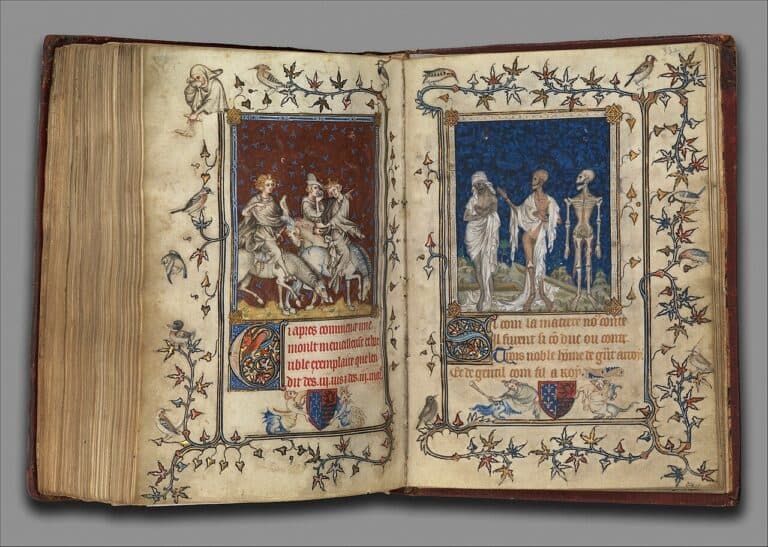 Ci apres commence une
moult merveilleuse et hor
rible exemplaire que len
dit des .iij. vis & des .iij. mor.
Si com la matiere no⁹ conte
Il furent si cõ duc ou conte
Troys noble hõme de grãt arroy
Et de gentil com fil a roy.